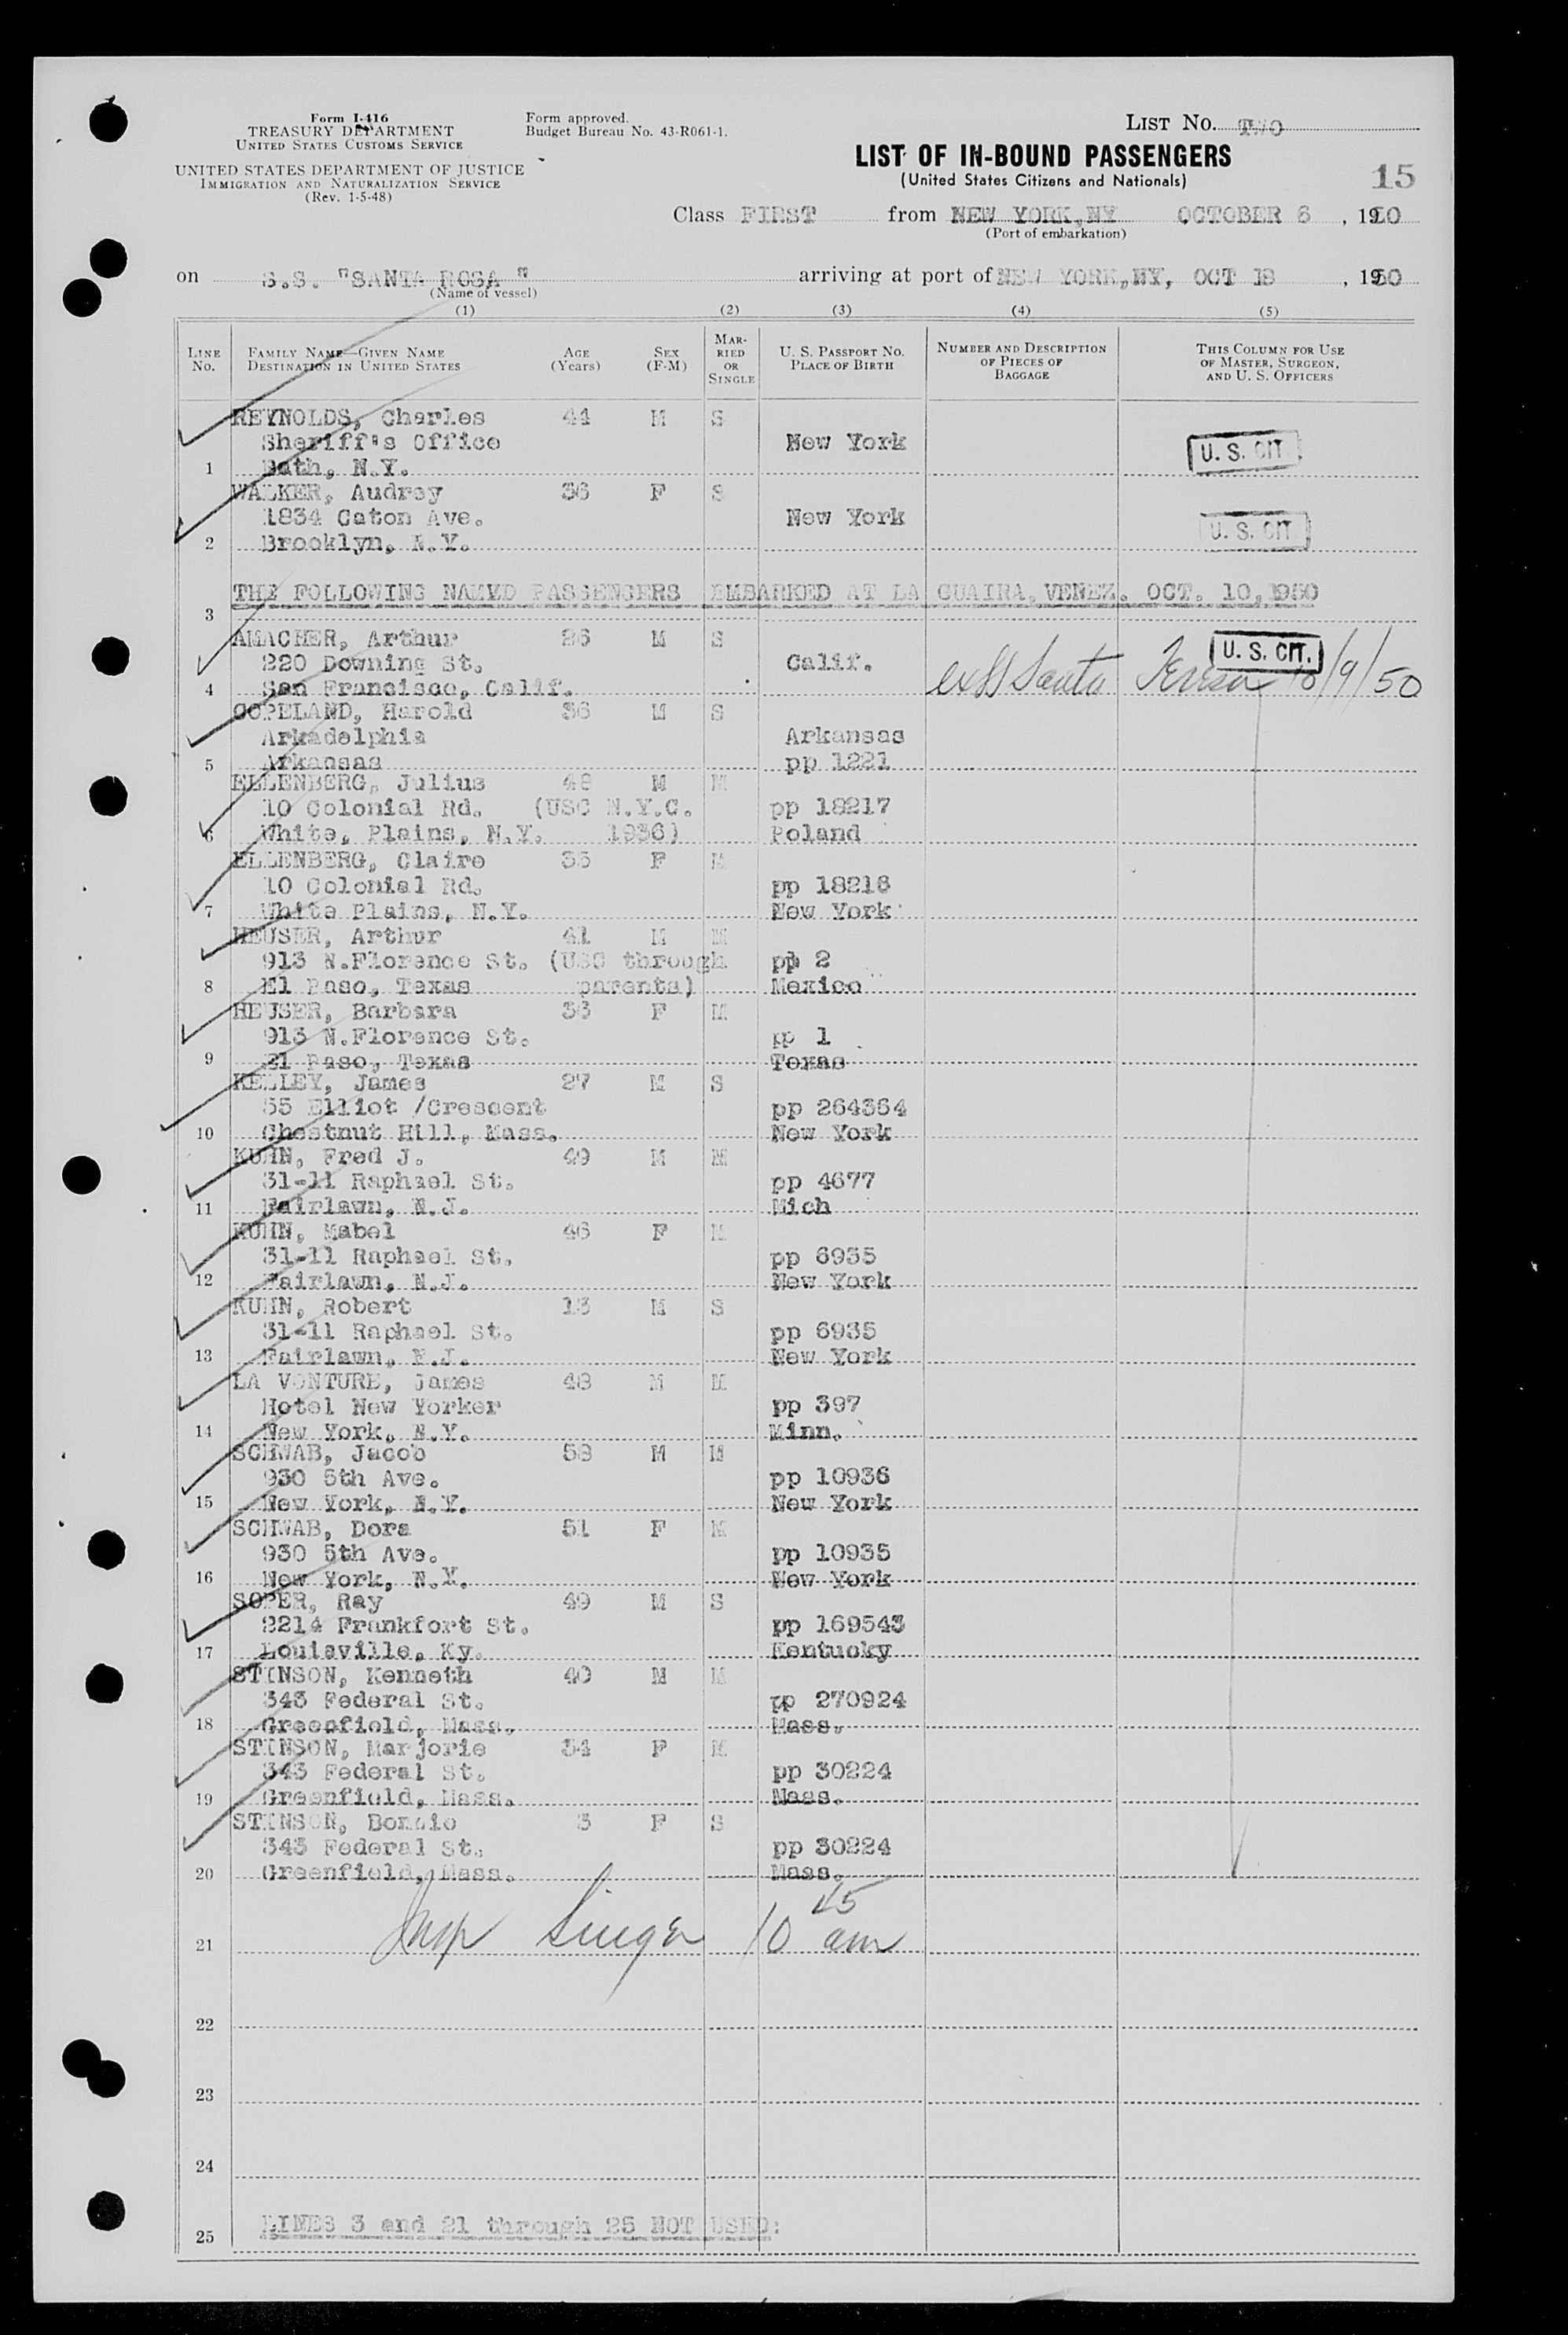 Form I-416
TREASURY DEPARTMENT
UNITED STATES CUSTOMS SERVICE
UNITED STATES DEPARTMENT OF JUSTICE
IMMIGRATION AND NATURALIZATION SERVICE
(Rev. 1-5-48)
Form approved.
Budget Bureau No. 43-R061-1.
LIST NO. TWO
LIST OF IN-BOUND PASSENGERS
(United States Citizens and Nationals)
15
Class FIRST from NEW YORK, NY OCTOBER 6, 1950
(Port of embarkation)
on S.S. "SANTA ROSA" arriving at port of NEW YORK, NY, OCT 18, 1950
(Name of vessel)
(1) (2) (3) (4) (5)
LINE NO.
FAMILY NAME—GIVEN NAME
DESTINATION IN UNITED STATES
AGE (Years)
SEX (F-M)
MARRIED OR SINGLE
U. S. PASSPORT NO.
PLACE OF BIRTH
NUMBER AND DESCRIPTION OF PIECES OF BAGGAGE
THIS COLUMN FOR USE OF MASTER, SURGEON, AND U. S. OFFICERS
REYNOLDS, Charles 44 M S
Sheriff's Office New York U. S. CIT.
1 Bath, N.Y.
WALKER, Audrey 36 F S
1834 Caton Ave. New York U. S. CIT.
2 Brooklyn, N.Y.
3 THE FOLLOWING NAMED PASSENGERS EMBARKED AT LA GUAIRA, VENEZ. OCT. 10, 1950
AMACHER, Arthur 26 M S
220 Downing St. Calif. U. S. CIT.
4 San Francisco, Calif. ex SS Santa Teresa 10/9/50
COPELAND, Harold 36 M S
Arkadelphia Arkansas
5 Arkansas pp 1221
ELLENBERG, Julius 48 M M
10 Colonial Rd. (USC N.Y.C. pp 18217
6 White, Plains, N.Y. 1936) Poland
ELLENBERG, Claire 35 F M
10 Colonial Rd. pp 18216
7 White Plains, N.Y. New York
HEUSER, Arthur 41 M M
913 N.Florence St. (USC through pp 2
8 El Paso, Texas parents) Mexico
HEUSER, Barbara 36 F M
913 N.Florence St. pp 1
9 El Paso, Texas Texas
KELLEY, James 27 M S
55 Elliot /Crescent pp 264364
10 Chestnut Hill, Mass. New York
KUHN, Fred J. 49 M M
31-11 Raphael St. pp 4677
11 Fairlawn, N.J. Mich
KUHN, Mabel 46 F M
31-11 Raphael St. pp 6935
12 Fairlawn, N.J. New York
KUHN, Robert 13 M S
31-11 Raphael St. pp 6935
13 Fairlawn, N.J. New York
LA VONTURE, James 48 M M
Hotel New Yorker pp 397
14 New York, N.Y. Minn.
SCHWAB, Jacob 58 M M
930 5th Ave. pp 10936
15 New York, N.Y. New York
SCHWAB, Dora 51 F M
930 5th Ave. pp 10935
16 New York, N.Y. New York
SOPER, Ray 49 M S
2214 Frankfort St. pp 169543
17 Louisville, Ky. Kentucky
STINSON, Kenneth 40 M M
343 Federal St. pp 270924
18 Greenfield, Mass. Mass.
STINSON, Marjorie 34 F M
343 Federal St. pp 30224
19 Greenfield, Mass. Mass.
STINSON, Bonnie 3 F S
343 Federal St. pp 30224
20 Greenfield, Mass. Mass.
21 Insp Singer 10 45 am
22
23
24
25 LINES 3 and 21 through 25 NOT USED: